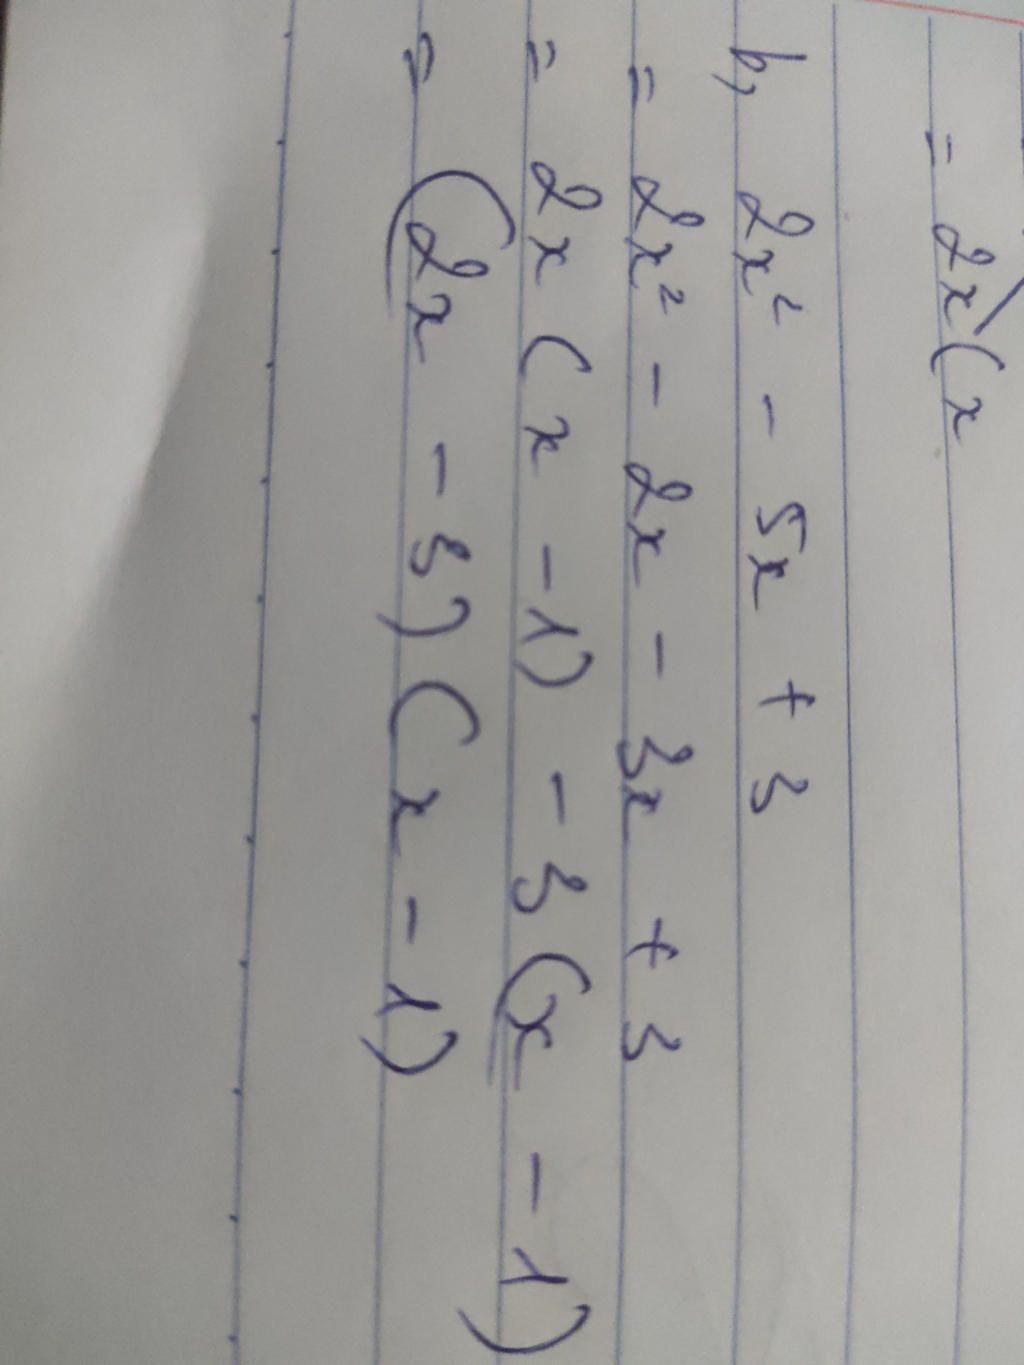 = 2x(x
b, 2x² - 5x + 3
= 2x² - 2x - 3x + 3
= 2x (x - 1) - 3 (x - 1)
= (2x - 3) (x - 1)